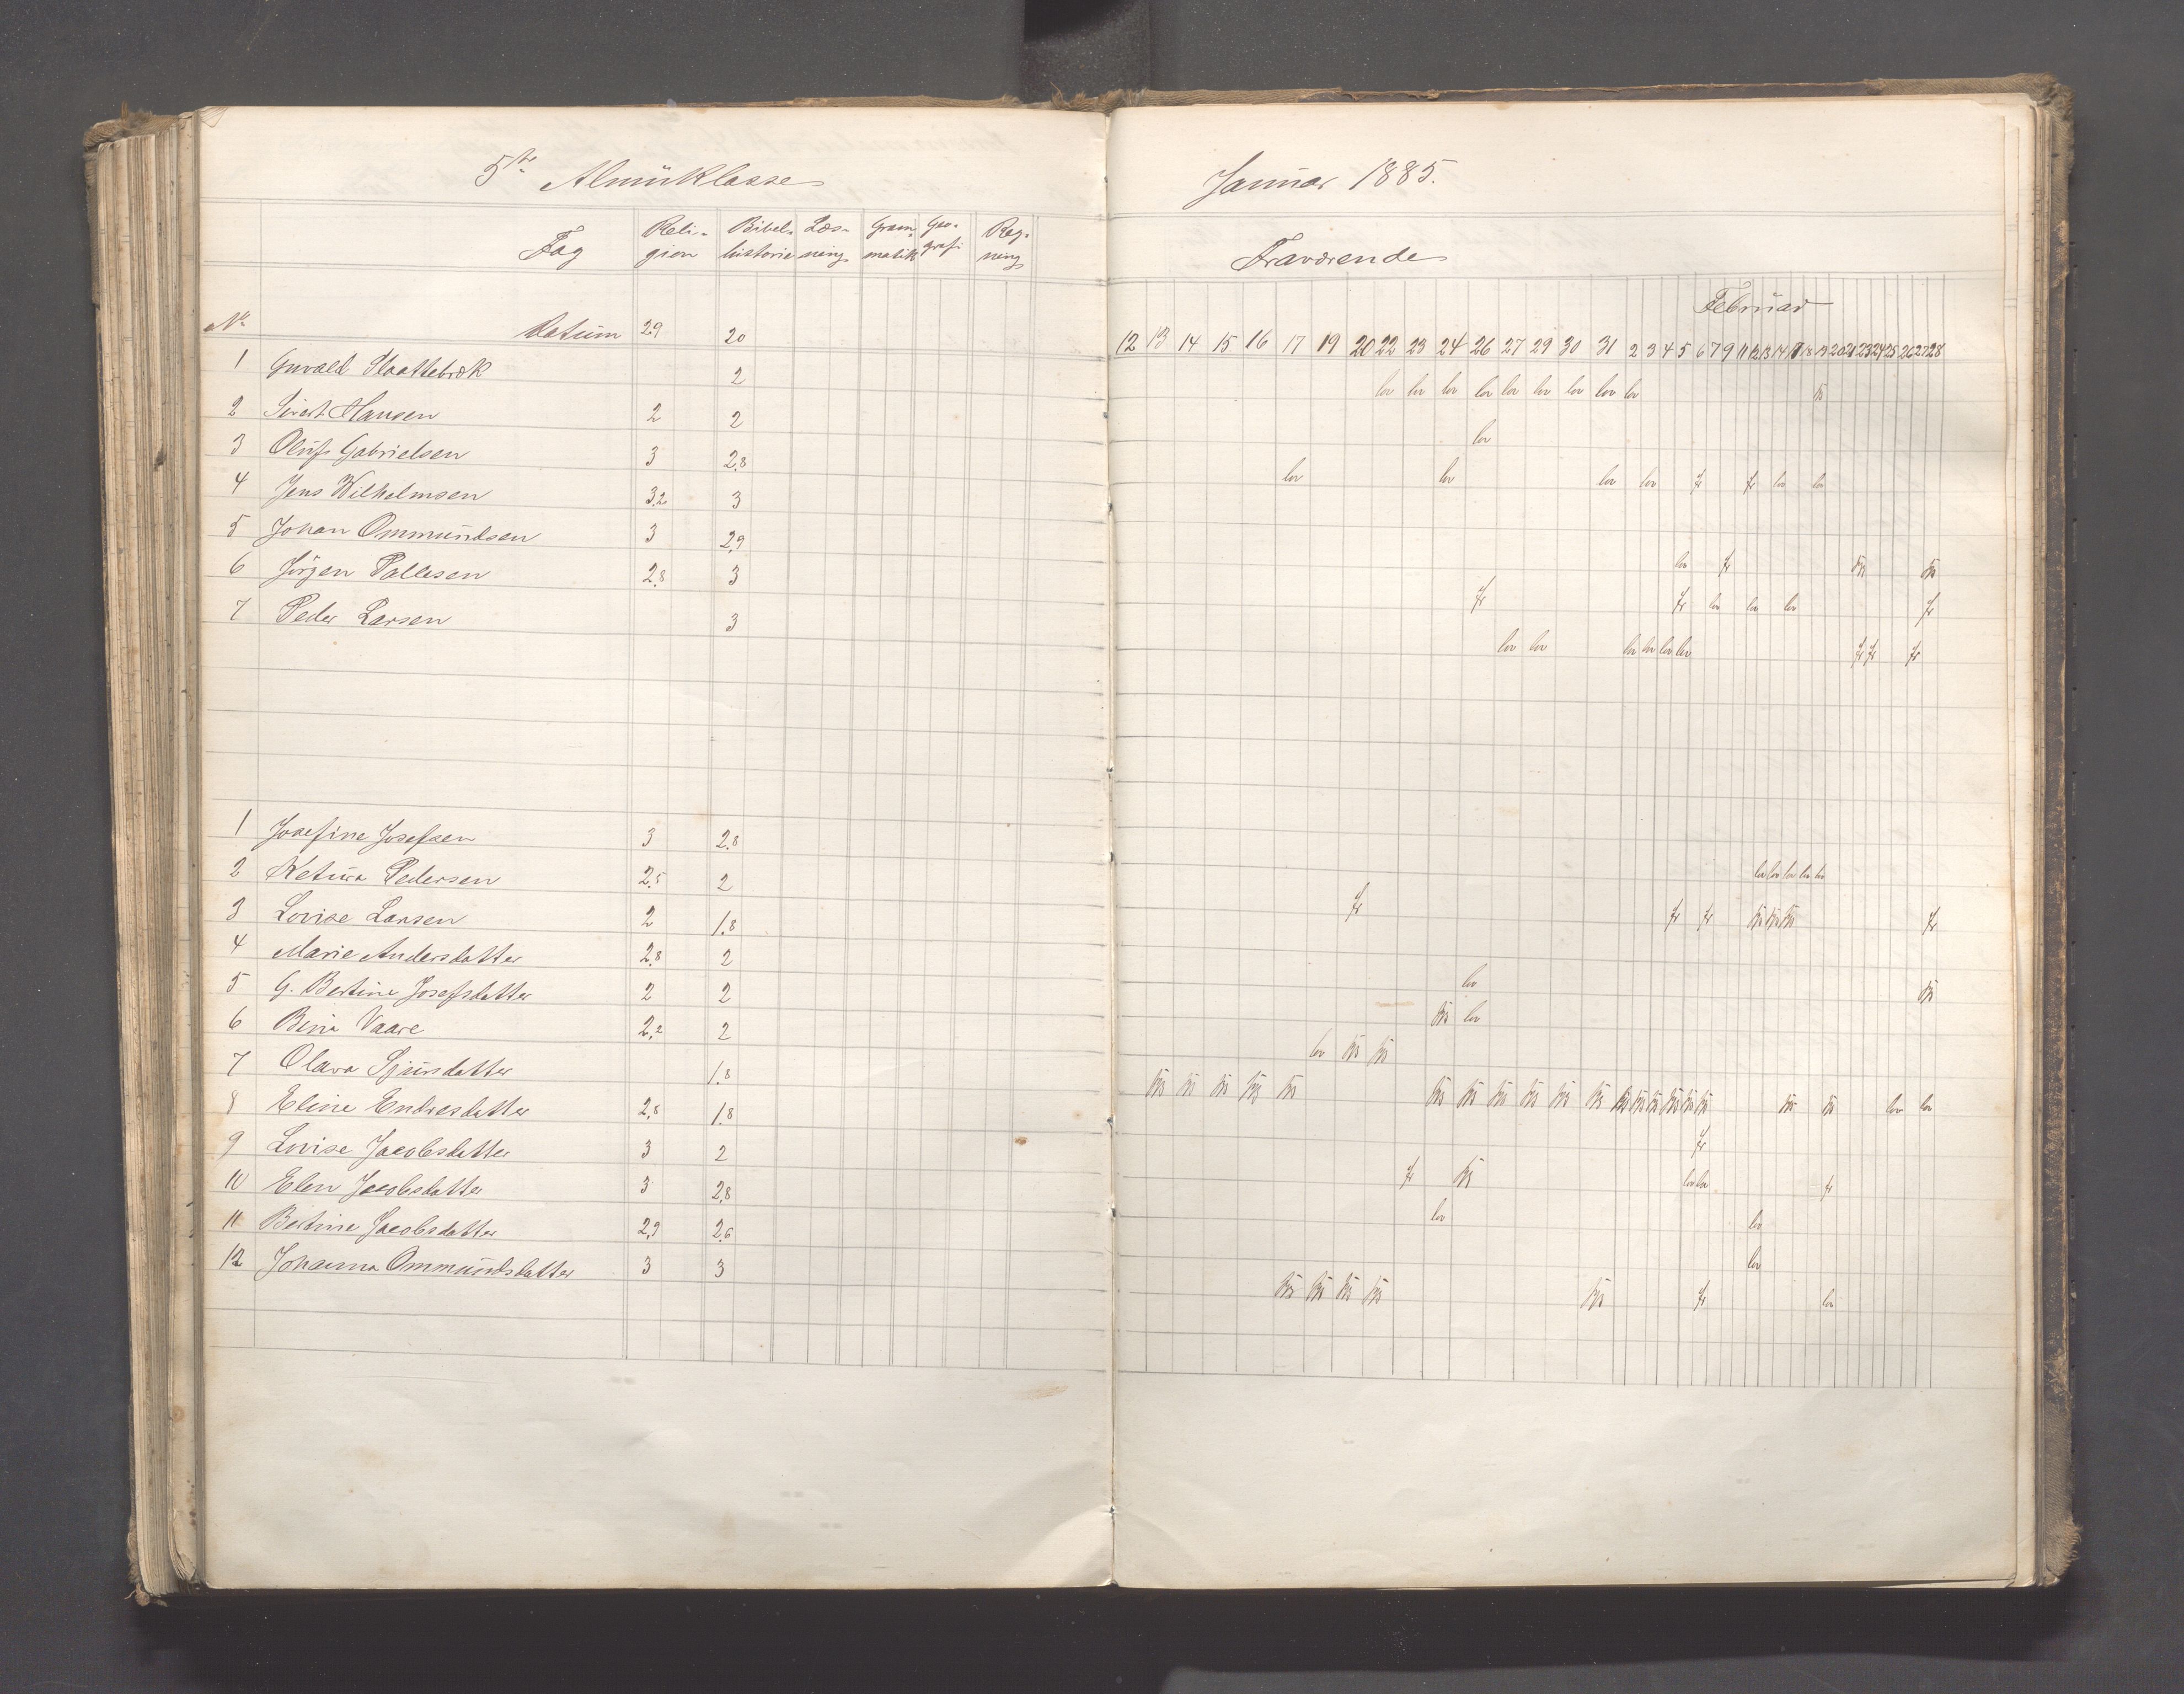 5te Almüklasse
Fag Reli-gion Bibel-historie Læs-ning Gram-matik Geo-grafi Reg-ning
No Datüm 29 20
1 Guvald 2
2 Sivert Hansen 2 2
3 Olüf Gabrielsen 3 2.8
4 Jens Wilhelmsen 3.2 3
5 Johan Ommündsen 3 2.9
6 Jörgen Pallesen 2.8 3
7 Peder Larsen 3
1 Josefine Josefsen 3 2.8
2 Ketüra Pedersen 2.5 2
3 Lovise Larsen 2 1.8
4 Marie Andersdatter 2.8 2
5 G. Bertine Josefsdatter 2 2
6 Bina Vaare 2.2 2
7 Olava Sjürsdatter 1.8
8 Eline Endresdatter 2,8 1.8
9 Lovise Jacobsdatter 3 2
10 Elen Jacobsdatter 3 2,8
11 Bertine Jacobsdatter 2,9 2.6
12 Johanna Ommündsdatter 3 3
Janüar 1885.
Fraværende
Febrüar
12 13 14 15 16 17 19 20 22 23 24 26 27 29 30 31 2 3 4 5 6 7 9 11 12 13 14 17 18 19 20 21 23 24 25 26 27 28
lov lov lov lov lov lov lov lov lov
lov
lov lov lov lov fr fr lov lov
lov fr
fr fr lov lov lov fr
lov lov lov lov lov lov fr fr fr
lov lov lov lov lov
fr fr fr fr
lov
lov
lov
lov lov
fr
fr lov lov fr
lov lov
lov
fr lov